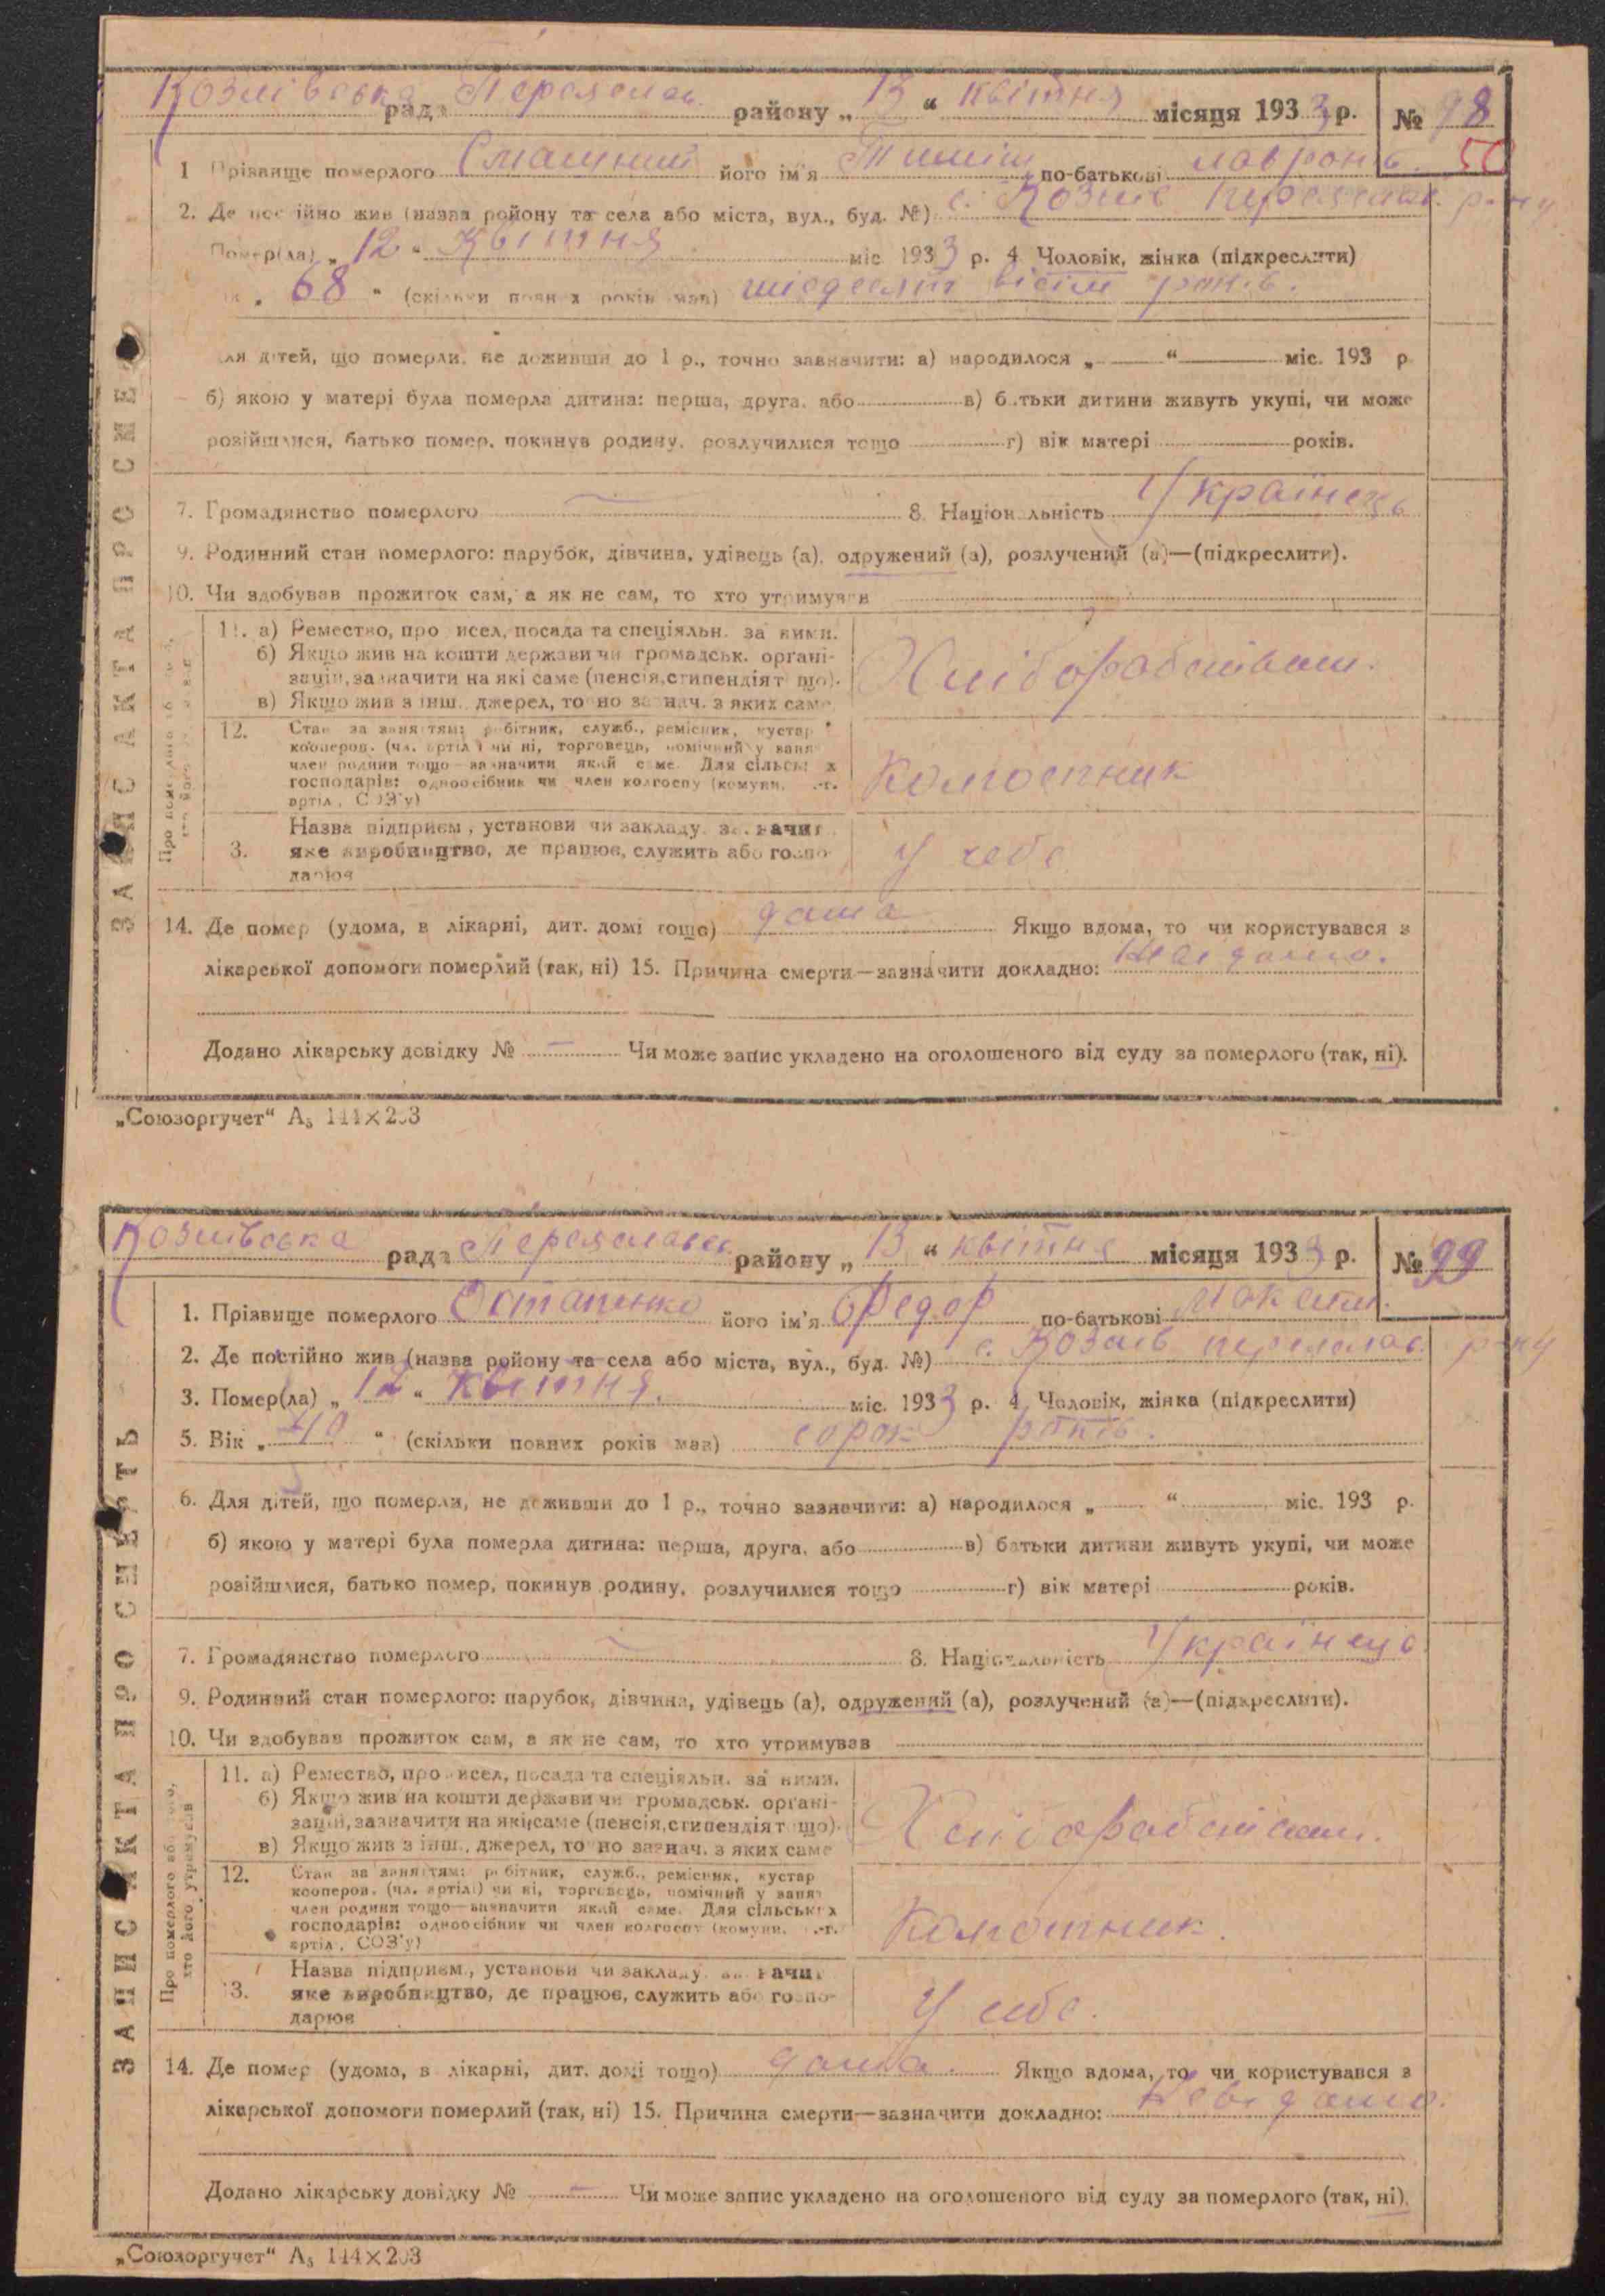 Козлівська рада Переяслав. району „13“ квітня місяця 1933 р. № 98
50
1 Прізвище померлого його ім'я Тиміш по-батькові Лавронів.
2. Де постійно жив (назва ройону та села або міста, вул., буд. №) с. Козлів Переяслав. р-ну
Помер(ла) „12“ Квітня міс 1933 р. 4 Чоловік, жінка (підкреслити)
„68“ (скільки повних років мав) шісдесят вісім років.
для дітей, що померли, не доживши до 1 р., точно зазначити: а) народилося „ “ міс. 193 р
б) якою у матері була померла дитина: перша, друга, або в) батьки дитини живуть укупі, чи може
розійшлися, батько помер, покинув родину, розлучилися тощо г) вік матері років.
7. Громадянство померлого — 8. Національність Українець
9. Родинний стан померлого: парубок, дівчина, удівець (а), одружений (а), розлучений (а)—(підкреслити).
10. Чи здобував прожиток сам, а як не сам, то хто утримував
ЗАПИС АКТА ПРО СМЕ
11. а) Ремество, промисел, посада та спеціяльн. за ними.
б) Якщо жив на кошти держави чи громадськ. органі-
зацій, зазначити на які саме (пенсія, стипендіят що).
в) Якщо жив з інш., джерел, то но зазнач. з яких саме
Хліборобством.
12. Стан за заняттям: робітник, служб., ремісник, кустар
кооперов. (чл. артілі) чи ні, торговець, помічний у занят
член родини тощо—зазначити який саме. Для сільськ х
господарів: одноосібник чи член колгоспу (комуни, с.-г.
артіл., СОЗ'у)
Колгоспник
3. Назва підприєм., установи чи закладу, зазначит
яке виробництво, де працює, служить або госпо-
дарює
У себе
14. Де помер (удома, в лікарні, дит. домі тощо) дома Якщо вдома, то чи користувався з
лікарської допомоги померлий (так, ні) 15. Причина смерти—зазначити докладно: Невідомо.
Додано лікарську довідку № — Чи може запис укладено на оголошеного від суду за померлого (так, ні).
„Союзоргучет“ А₅ 144×203
Козлівська рада Переяславськ району „13“ квітня місяця 1933 р. № 99
1. Прізвище померлого Остапенко його ім'я Федор по-батькові Максим.
2. Де постійно жив (назва ройону та села або міста, вул., буд. №) с. Козлів переяслав. р-ну
3. Помер(ла) „12“ квітня. міс. 1933 р. 4 Чоловік, жінка (підкреслити)
5. Вік „40“ (скільки повних років мав) сорок років.
6. Для дітей, що померли, не доживши до 1 р., точно зазначити: а) народилося „ “ міс. 193 р.
б) якою у матері була померла дитина: перша, друга, або в) батьки дитини живуть укупі, чи може
розійшлися, батько помер, покинув родину, розлучилися тощо г) вік матері років.
7. Громадянство померлого — 8. Національність Українець
9. Родинний стан померлого: парубок, дівчина, удівець (а), одружений (а), розлучений (а)—(підкреслити).
10. Чи здобував прожиток сам, а як не сам, то хто утримував
ЗАПИС АКТА ПРО СМЕРТЬ
Про померлого або того, хто його утримував
11. а) Ремество, промисел, посада та спеціяльн. за ними.
б) Якщо жив на кошти держави чи громадськ. органі-
зацій, зазначити на які саме (пенсія, стипендіят що).
в) Якщо жив з інш., джерел, то но зазнач. з яких саме
Хліборобством.
12. Стан за заняттям: робітник, служб., ремісник, кустар
кооперов. (чл. артілі) чи ні, торговець, помічний у занят
член родини тощо—зазначити який саме. Для сільських
господарів: одноосібник чи член колгоспу (комуни, с.-г.
артіл., СОЗ'у)
Колгоспник.
13. Назва підприєм., установи чи закладу, зазначит
яке виробництво, де працює, служить або госпо-
дарює
У себе.
14. Де помер (удома, в лікарні, дит. домі тощо) дома. Якщо вдома, то чи користувався з
лікарської допомоги померлий (так, ні) 15. Причина смерти—зазначити докладно: Невідомо.
Додано лікарську довідку № — Чи може запис укладено на оголошеного від суду за померлого (так, ні).
„Союзоргучет“ А₅ 144×203